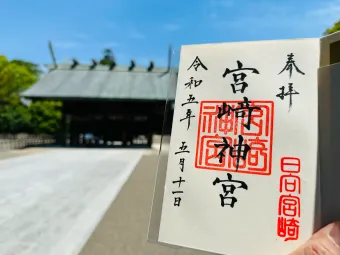 奉拝
日向宮崎
宮崎神宮
宮崎神宮
令和五年 五月十一日